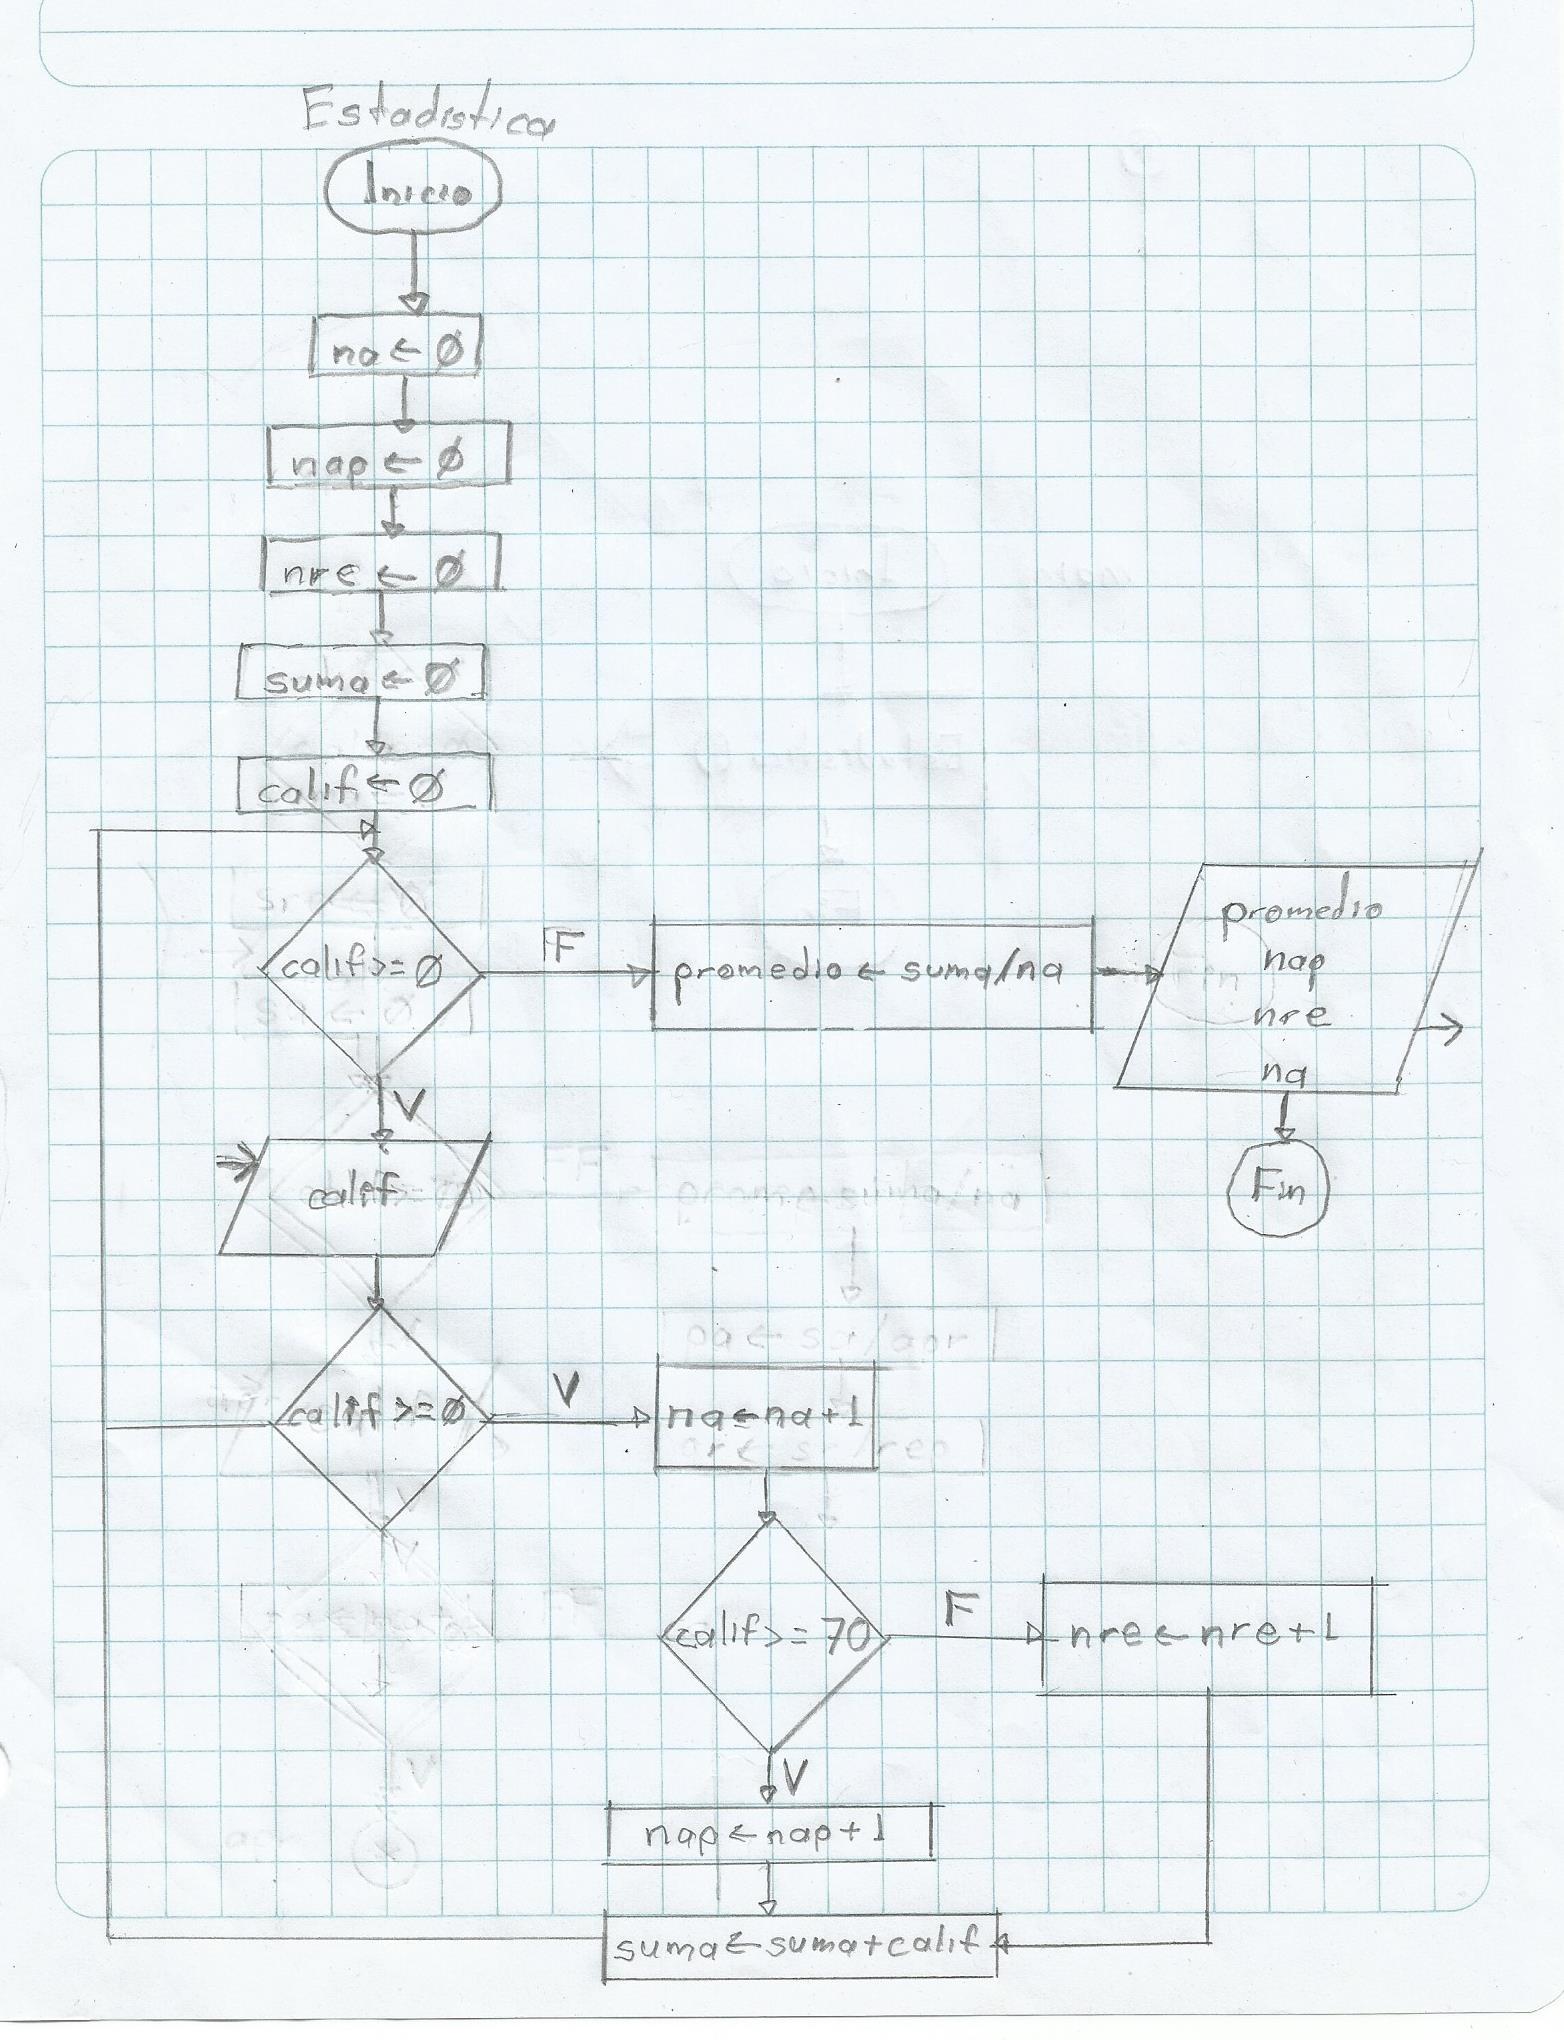 Estadistica
Inicio
na ← Ø
nap ← Ø
nre ← Ø
suma ← Ø
calif ← Ø
calif >= Ø
F
promedio ← suma/na
promedio
nap
nre
na
Fin
V
calif
calif >= Ø
V
na ← na + 1
calif >= 70
F
nre ← nre + 1
V
nap ← nap + 1
suma ← suma + calif